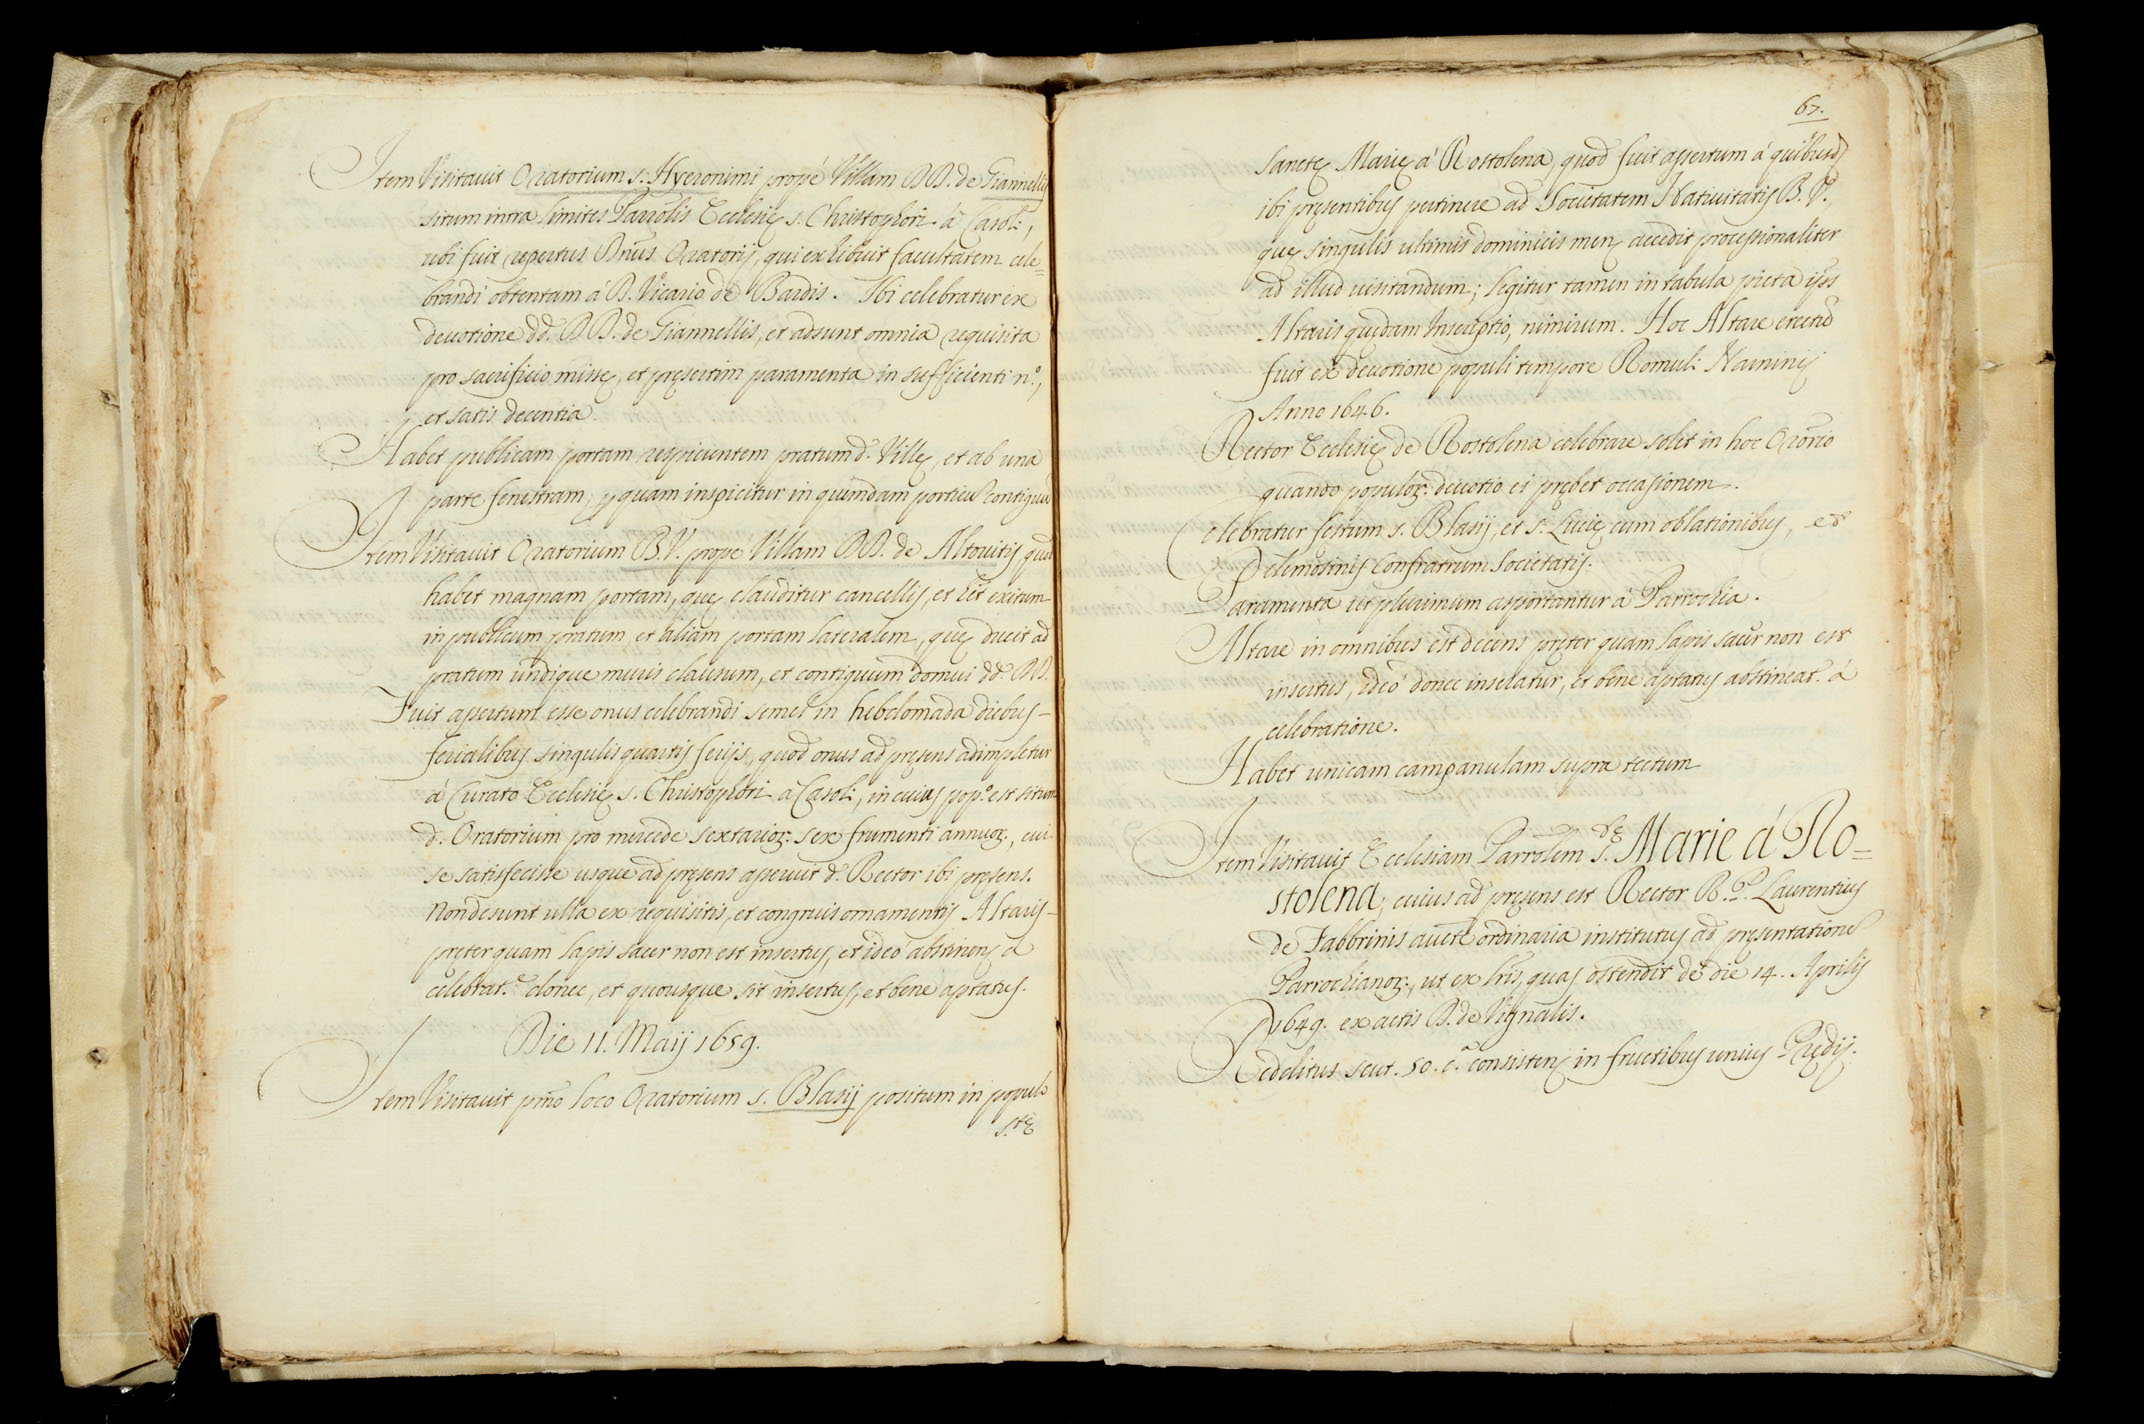 Item Visitauit Oratorium s. Hyeronimi propè Villam DD. de Giannellis
situm intra limites Parrolis Ecclesię s. Christophori à Casoli,
ubi fuit repertus Dnus Oratorij, qui exhibuit facultatem cele=
brandi obtentam à D. Vicario de Bardis. Ibi celebratur ex
deuotione dd. DD. de Giannellis, et adsunt omnia requisita
pro sacrificio missę, et pręsertim paramenta in sufficienti nº.,
et satis decentia.
Habet publicam portam respicientem pratum d. Villę, et ab una
parte fenestram, p quam inspicitur in quemdam porticu contiguu
Item Visitauit Oratorium B.V. propè Villam DD. de Altouitis quod
habet magnam portam, quę clauditur cancellis, et hēt exitum
in publicum pratum, et aliam portam lateralem, quę ducit ad
pratum undique muris clausum, et contiguum domui dd. DD.
Fuit assertum esse onus celebrandi semel in hebdomada diebus
ferialibus singulis quartis ferijs, quod onus ad pręsens adimpletur
à Curato Ecclesię s. Christophori à Casoli, in cuius pop.º est situm
d. Oratorium pro mercede sextarioz. sex frumenti annuoz., cui
se satisfecisse usque ad pręsens asseruit d. Rector ibi pręsens.
Non desunt ulla ex requisitis, et congruis ornamentis Altaris
pręter quam lapis sacer non est insertus, et ideò abstinenz à
celebrat.e donec, et quousque sit insertus, et benè aptatus.
Die 11. Maij 1659.
Item Visitauit pmo loco Oratorium s. Blasij positum in populo
S.tę
67.
Sanctę Marię à Rostolena, quod fuit assertum à quibusd
ibi pręsentibus pertinere ad Societatem Natiuitatis B.V.,
quę singulis ultimis dominicis menz accedit processionaliter
ad illud uisitandum; legitur tamen in tabula picta ipss
Altaris quędam Inscriptio, nimirum. Hoc Altare erectu
fuit ex deuotione populi tempore Romuli Nanninis
Anno 1646.
Rector Ecclesię de Rostolena celebrare solet in hoc Orōrio
quando populoz. deuotio ei prębet occasionem.
Celebratur festum s. Blasij, et s. Lucię cum oblationibus, et
elemosinis Confratrum Societatis.
Paramenta ut plurimum asportantur à Parrochia.
Altare in omnibus est decens pręter quam lapis sacer non est
insertus, ideò donec inseratur, et bene aptatus abstineat. à
celebratione.
Habet unicam campanulam supra tectum
Item Visitauit Ecclesiam Parrolem S.tę Marie à Ro=
stolena, cuius ad pręsens est Rector R.P. Laurentius
de Fabbrinis aucte ordinaria institutus ad pręsentatione
Parrochianoz., ut ex lris, quas ostendit de die 14. Aprilis
1649. ex actis D. de Vignalis.
Redditus scut. 50. c.a consistenz in fructibus unius Prędij.